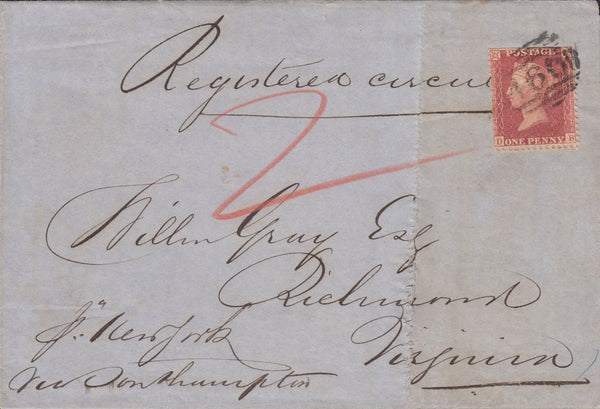 Registered circu
POSTAGE
D K
ONE PENNY
2
Willm Gray Esq
Richmond
Virginia
pr New York
via Southampton